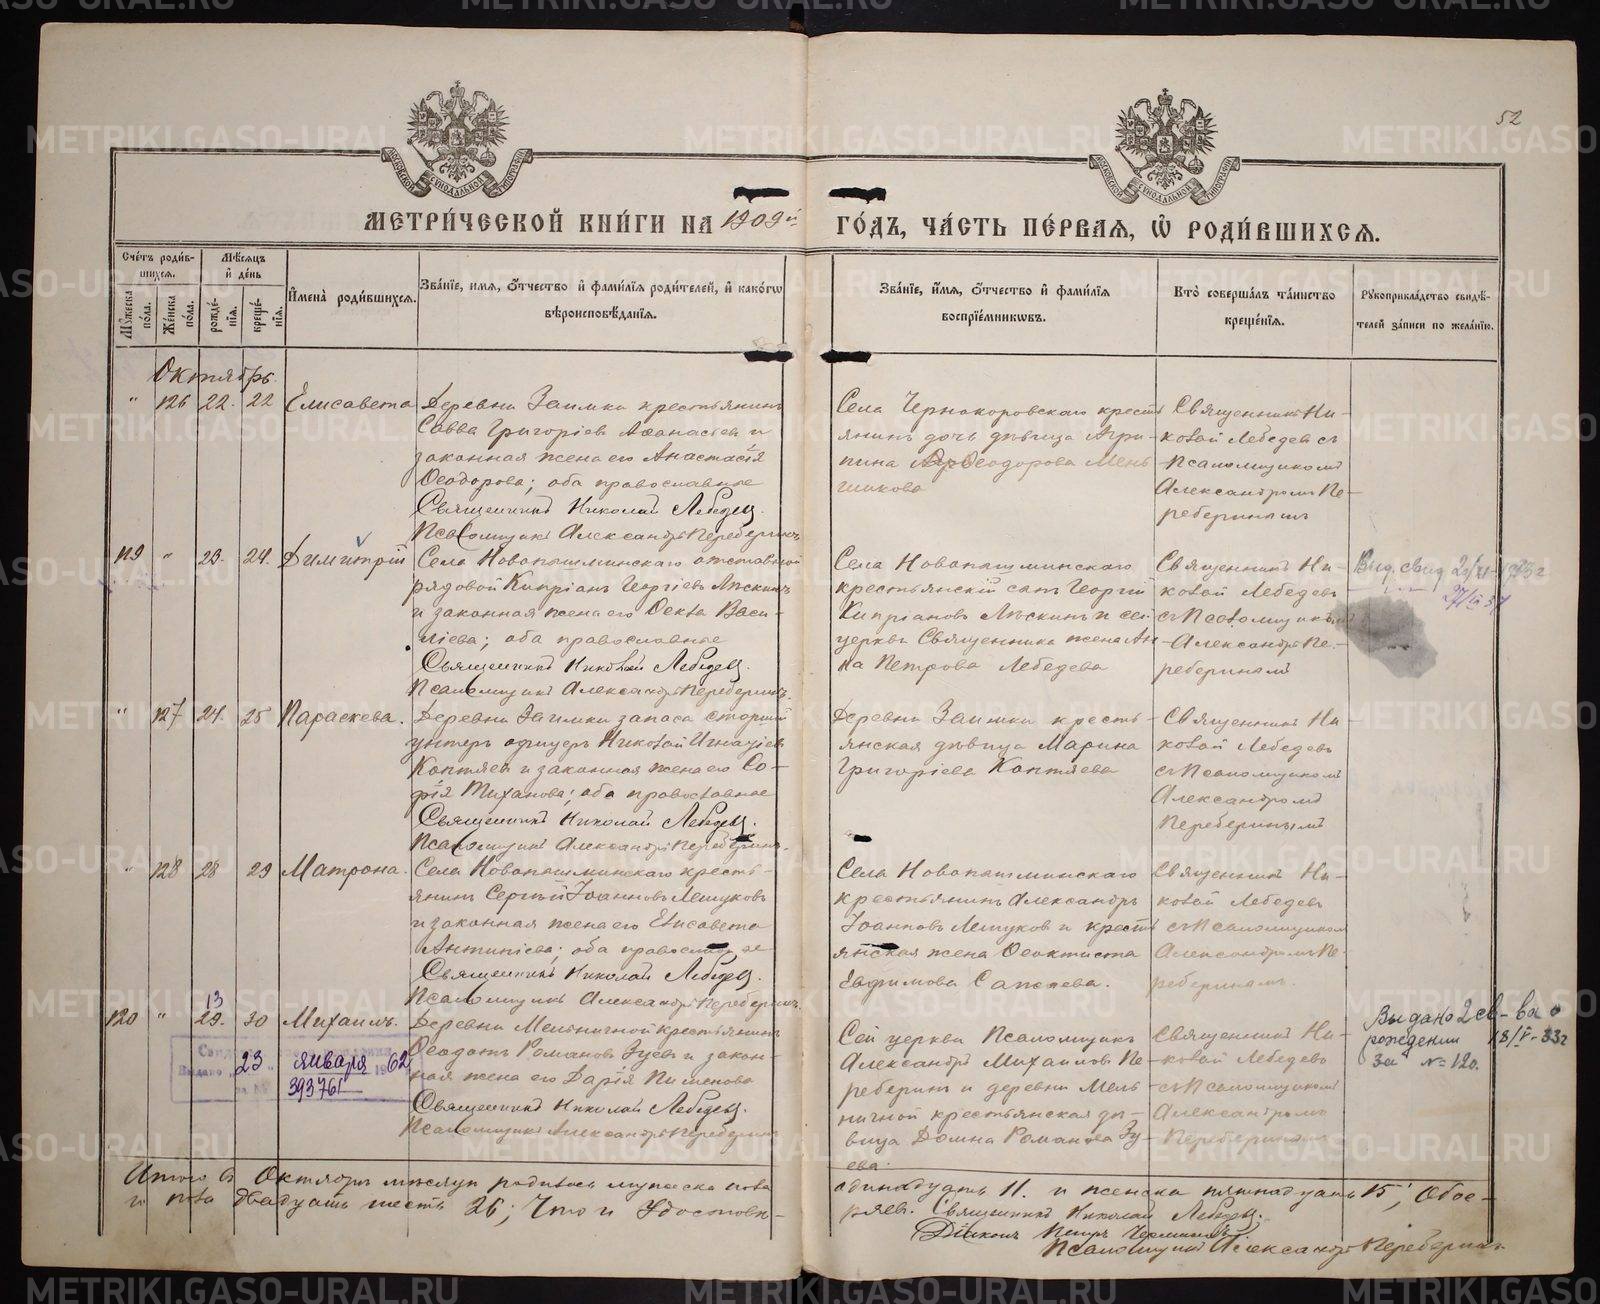 52
МОСКОВСКОЙ СѴНОДАЛЬНОЙ ТИПОГРАФІИ
МОСКОВСКОЙ СѴНОДАЛЬНОЙ ТИПОГРАФІИ
МЕТРИ́ЧЕСКОЙ КНИ́ГИ НА 1909й ГО́ДЪ, ЧА́СТЬ ПЕ́РВАѦ, Ѡ҆ РОДИ́ВШИХСѦ.
Сче́тъ роди́в-
шихсѧ.
Мꙋ́жеска по́ла.
Же́нска по́ла.
Мѣ́сѧцъ и҆ де́нь
рожде́-нїѧ.
креще́-нїѧ.
И҆мена̀ роди́вшихсѧ.
Зва́нїе, и҆мѧ, ѻ҆́тчество и҆ фами́лїѧ роди́телей, и҆ како́гѡ
вѣроисповѣ́данїѧ.
Зва́нїе, и҆́мѧ, ѻ҆́тчество и҆ фами́лїѧ
воспрїе́мникѡвъ.
Кто̀ соверша́лъ та́инство
креще́нїѧ.
Рꙋкоприкла́дство свидѣ́-
телей за́писи по жела́нїю.
Октябрь
" 126 22. 22 Елисавета
Деревни Заимки крестьянинъ
Савва Григоріевъ Аѳанасьевъ и
законная жена его Анастасія
Ѳеодорова; оба православные
Священникъ Николай Лебедевъ.
Псаломщикъ Александръ Переберинъ
Села Чернокоровскаго кресть
янинъ дочь дѣвица Агри-
пина Ѳеодорова Мень
шикова
Священникъ Ни-
колай Лебедевъ съ
Псаломщикомъ
Александромъ Пе-
реберинымъ
119 " 23. 24. Димитрій
Села Новопышминскаго отставной
рядовой Кипріанъ Георгіевъ Лѣскинъ
и законная жена его Ѳекла Васи-
ліева; оба православные
Священникъ Николай Лебедевъ.
Псаломщикъ Александръ Переберинъ.
Села Новопышминскаго
крестьянскій сынъ Георгій
Кипріановъ Лѣскинъ и сей
церкви Священника жена Ан
на Петрова Лебедева
Священникъ Ни-
колай Лебедевъ
съ Псаломщикомъ
Александромъ Пе-
реберинымъ
Выд. свид.
" 127 24. 25 Параскева.
Деревни Заимки запаса старшій
унтеръ офицеръ Николай Игнатіевъ
Коптяевъ и законная жена его Со-
фія Тиханова; оба православные
Священникъ Николай Лебедевъ.
Псаломщикъ Александръ Переберинъ.
Деревни Заимки кресть-
янская дѣвица Марина
Григоріева Коптяева
Священникъ Ни-
колай Лебедевъ
съ Псаломщикомъ
Александромъ
Переберинымъ
" 128 28 29 Матрона.
Села Новопышминскаго кресть-
янинъ Сергій Іоанновъ Лешуковъ
и законная жена его Елисавета
Антипіева; оба православные
Священникъ Николай Лебедевъ.
Псаломщикъ Александръ Переберинъ.
Села Новопышминскаго
крестьянинъ Александръ
Іоанновъ Лешуковъ и кресть
янская жена Ѳеоктиста
Евфимова Сапогева.
Священникъ Ни-
колай Лебедевъ
съ Псаломщикомъ
Александромъ Пе-
реберинымъ.
13
120 " 29. 30 Михаилъ.
Деревни Мельничной крестьянинъ
Ѳеодотъ Романовъ Зуевъ и закон-
ная жена его Дарія Пименова
Священникъ Николай Лебедевъ.
Псаломщикъ Александръ Переберинъ
23 января 1962
393761
Сей церкви Псаломщикъ
Александръ Михаиловъ Пе-
реберинъ и деревни Мель
ничной крестьянская дѣ-
вица Домна Романова Зу-
ева.
Священникъ Ни-
колай Лебедевъ
съ Псаломщикомъ
Александромъ
Переберинымъ
Выдано 2 св-ва о
рождении 18/V-33г
За № 120.
Итого въ Октябрѣ мѣсяцѣ родилось мужеска пола
одинадцать 11. и женска пятнадцать 15; Обое-
го пола двадцать шесть 26; Что и Удостовѣ-
ряемъ. Священникъ Николай Лебедевъ.
Діаконъ Петръ
Псаломщикъ Александръ Переберинъ.
METRIKI.GASO-URAL.RU